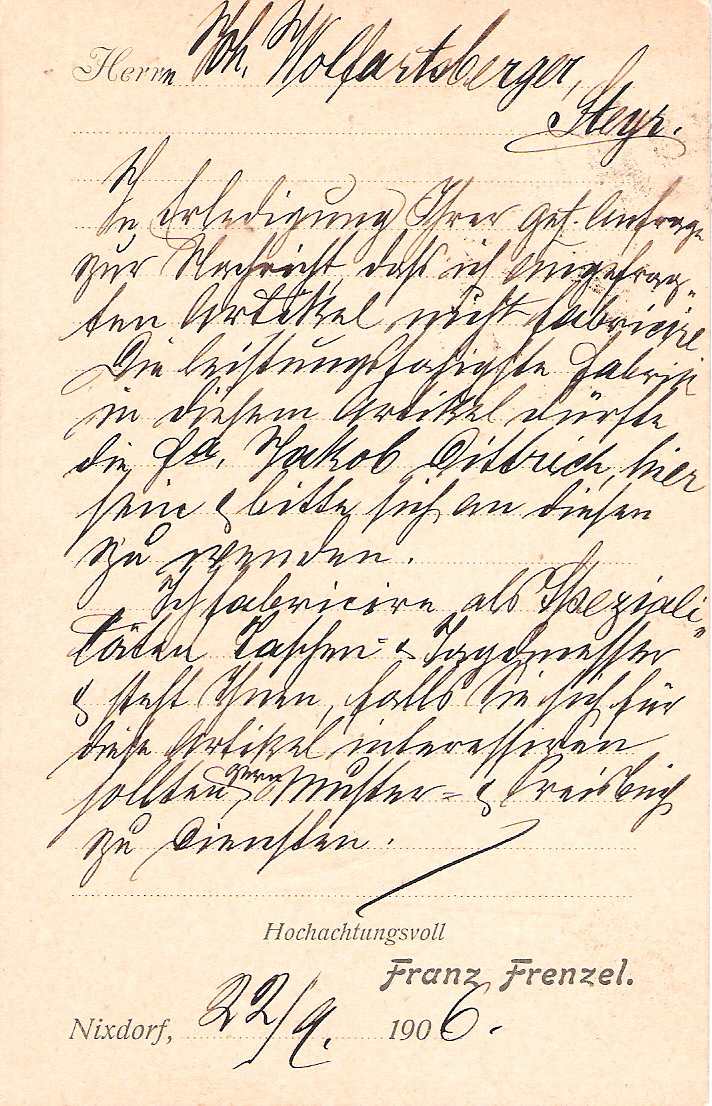 Herrn Joh. Wolfartsberger,
Steyr.
In Erledigung Ihrer gef. Anfrage
zur Nachricht, daß ich angefrag-
ten Artikel nicht fabricire
Die leistungsfähigste Fabrik
in diesem Artikel dürfte
die Fa. Jakob Dittrich, hier
sein & bitte sich an diesen
zu wenden.
Ich fabricire als Speziali-
täten Taschen- & Jagdmesser
& steht Ihnen, falls Sie sich für
diese Artikel interessiren
sollten gern Muster- & Preisbuch
zu Diensten.
Hochachtungsvoll
Franz Frenzel.
Nixdorf, 22/9. 1906.